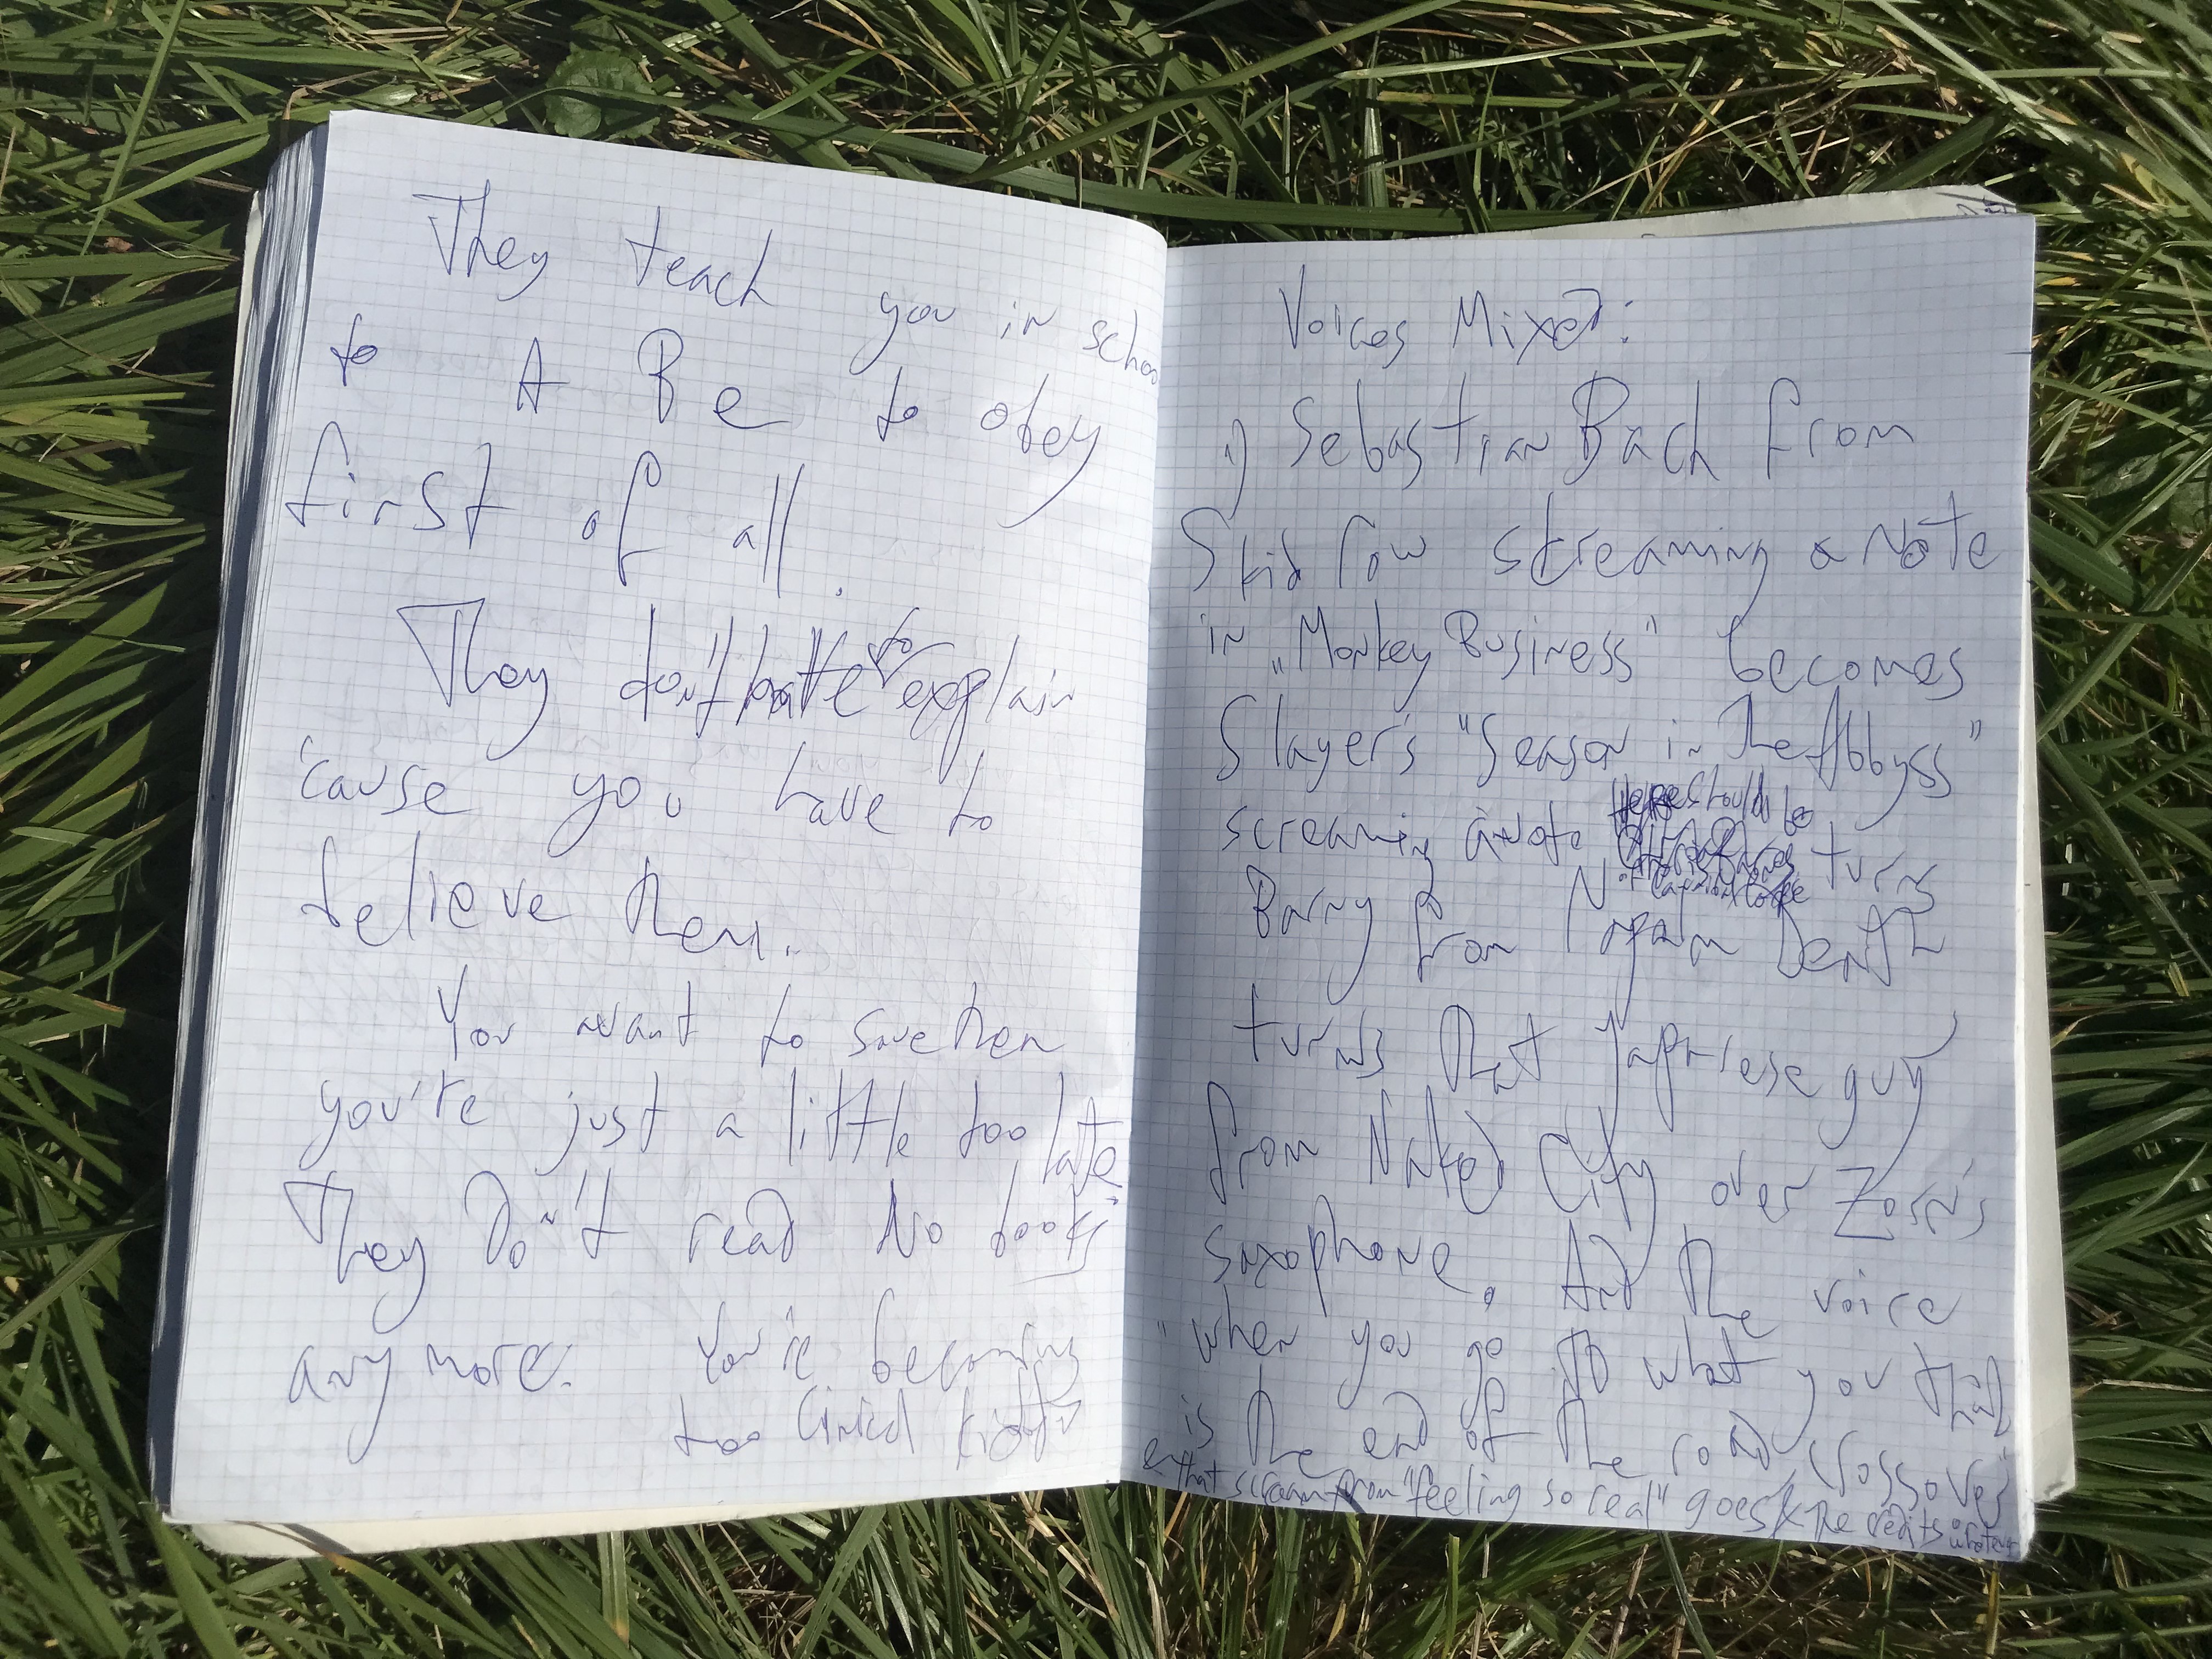 They teach you in school
to A Be to obey
First of all.
They don't have to explain
cause you have to
believe them.
You want to save them
you're just a little too late
They Don't read No books
any more.
You're becoming
too
Voices Mixed:
1) Sebastian Bach from
Skid Row screaming a note
in "Monkey Business" becomes
Slayer's "Season in the Abyss"
screaming
turns
Barny from Napalm Death
turns that Nameless guy
from Naked City over Zorn's
saxophone, And the voice
"when you go to what you think
is the end of the
from "feeling so real" goes